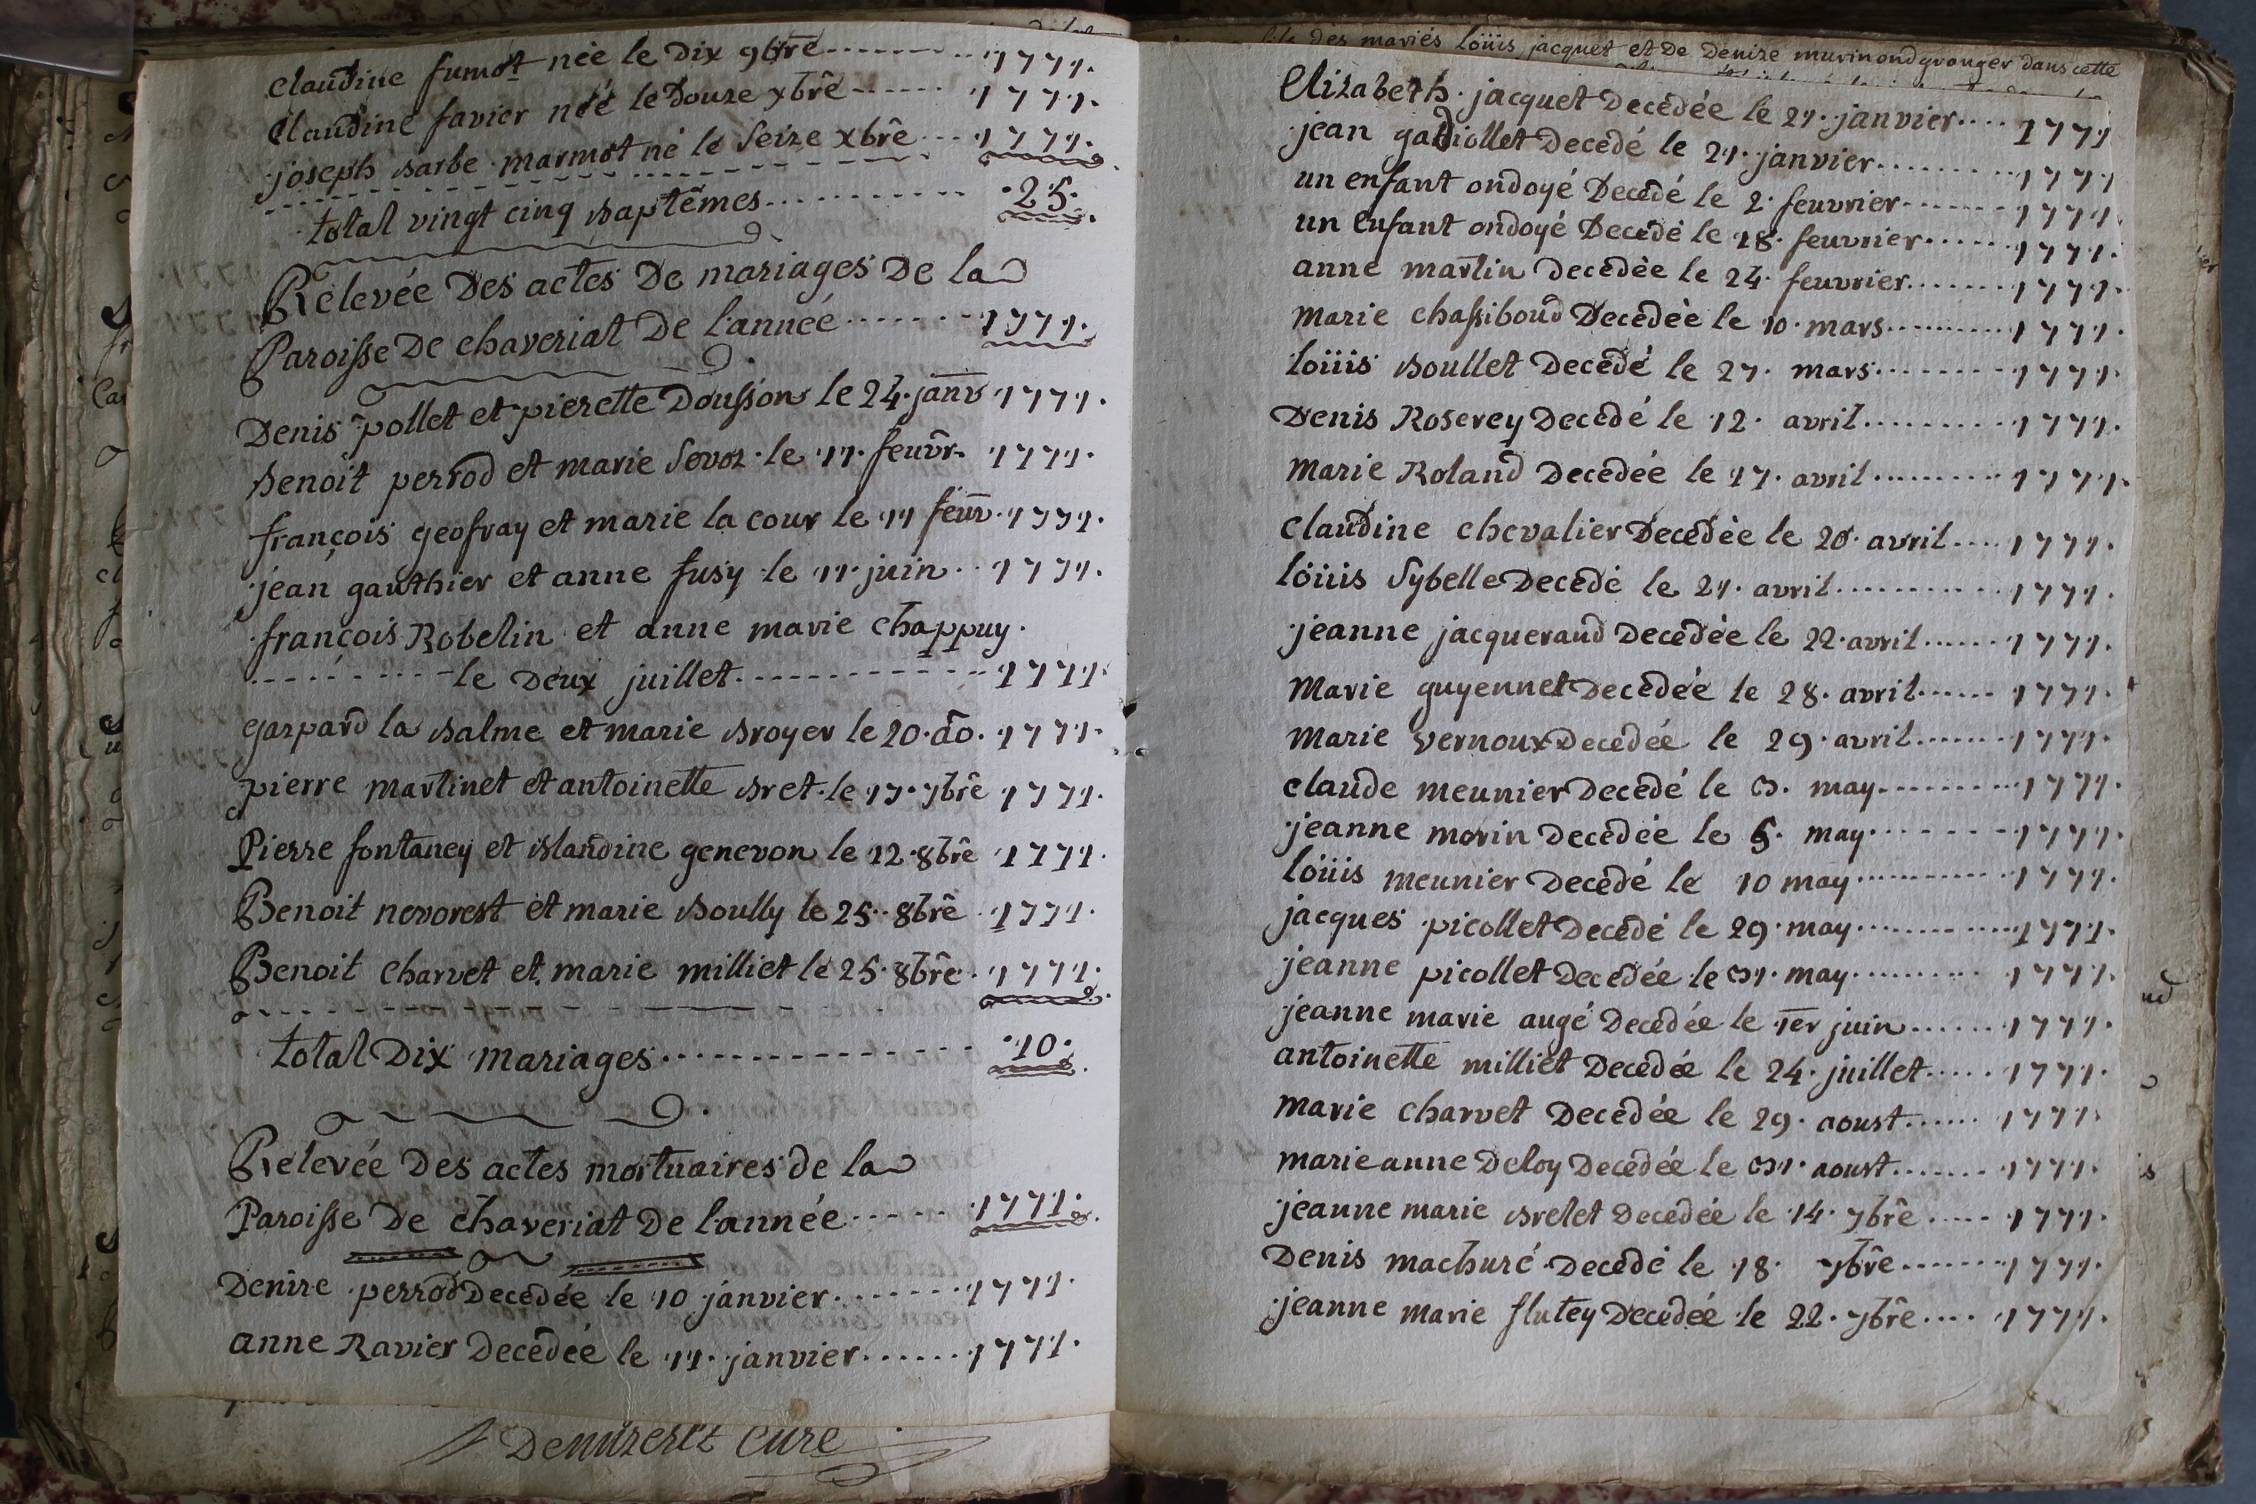 Claudine fumot née le Dix 9bre 1771.
Claudine favier née le Douze xbre 1771.
joseph barbe marmot né le Seize xbre 1771.
total vingt cinq baptêmes 25.
Relevée Des actes De mariages De la
Paroisse De chaveriat De l'année 1771.
Denis pollet et pierette Dousson le 24. janv 1771.
Benoit perrod et marie Sevoz le 11. feuvr. 1771.
françois geofray et marie la cour le 11 feuv. 1771.
jean gauthier et anne fusy le 11. juin 1771.
françois Robelin et anne marie chappuy.
le Deux juillet 1771.
gaspard la balme et marie broyer le 20. do. 1771.
pierre martinet et antoinette bret le 17. 7bre 1771.
Pierre fontaney et blandine genevon le 12. 8bre 1771.
Benoit nevorest et marie boully le 25. 8bre 1771.
Benoit charvet et marie milliet le 25. 8bre 1771.
total Dix mariages 10.
Relevée Des actes mortuaires de la
Paroisse De chaveriat De l'année 1771.
Denize perrod Decedée le 10 janvier 1771.
anne Ravier Decedée le 11. janvier 1771.
curé
fils des mariés loüis jacquet et De Denize murinond granger dans cette
Elizabeth jacquet Decedée le 21. janvier 1771
jean gadiollet Decedé le 21. janvier 1771
un enfant ondoyé Decedé le 2. feuvrier 1771.
un enfant ondoyé Decedé le 18. feuvrier 1771.
anne martin decedée le 24. feuvrier 1771.
marie chassiboud Decedée le 10. mars 1771.
loüis boullet Decedé le 27. mars 1771.
Denis Roserey Decedé le 12. avril 1771.
marie Roland Decedée le 17. avril 1771.
claudine chevalier Decedée le 20. avril 1771.
loüis Sybelle Decedé le 21. avril 1771.
jeanne jacqueraud Decedée le 22. avril 1771.
marie guyennet Decedée le 28. avril 1771.
marie vernoux Decedée le 29. avril 1771.
claude meunier Decedé le 3. may 1771.
jeanne morin Decedée le 5. may 1771.
loüis meunier Decedé le 10 may 1771.
jacques picollet Decedé le 29. may 1771.
jeanne picollet Decedée le 31. may 1771.
jeanne marie augé Decedée le 1er juin 1771.
antoinette milliet Decedée le 24. juillet 1771.
marie charvet Decedée le 29. aoust 1771.
marie anne Deloy Decedée le 31. aoust 1771.
jeanne marie brelet Decedée le 14. 7bre 1771.
Denis machuré Decedé le 18. 7bre 1771.
jeanne marie flutey Decedée le 22. 7bre 1771.